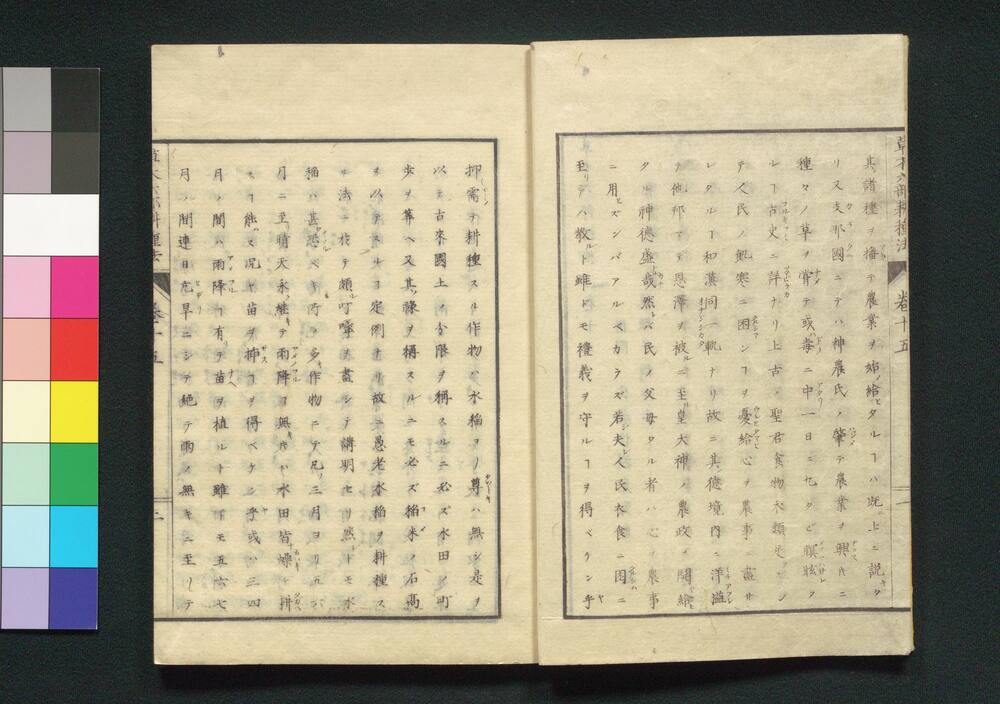 草木六部耕種法
卷十五
其諸種ヲ播テ農業ヲ始給ヒタルヿハ既ニ上ニ說キタ
リ又支那國ニテハ神農氏ノ肇テ農業ヲ興スニ
種々ノ草ヲ嘗テ或ハ毒ニ中一日ニ七タビ瞑眩ク
レヿ古史ニ詳ナリ上古ノ聖君食物衣類
テ人民ノ飢寒ニ困ンヿヲ憂給心ヲ農事ニ盡サ
レタルヿ和漢同一軌ナリ故ニ其德境內ニ洋溢
テ他邦マデ恩澤ヲ被ルニ至ル皇大神ノ農政ヲ開給
タル神德盛哉然レバ民ノ父母タル者ハ心ヲ農事
ニ用ヒズンバアルベカラズ若シ夫レ人民衣食ニ困ニ
至リテハ敎ルト雖ドモ禮義ヲ守ルヿヲ得ベケンヤ乎
抑需テ耕種スル作物ハ水稻ヨリ尊ハ無シ是ヲ
以テ古來國土ノ分限ヲ稱スルニ必ズ水田ノ町
步ヲ算ヘ又其祿ヲ稱スルニモ必ズ稻米ノ石高
ヲ以テスルヲ定例ナリ故ニ愚老水稻ヲ耕種ス
ル法ニ於テ頗ル叮嚀ヲ盡シテ講明セリ然レドモ水
稻ハ甚恐ベキ所ノ多キ作物ニテ凡ソ三月ヨリ五六
月ニ至晴天永繼キテ雨降ヿ無キハ水田皆燥キ耕
スヿ能ハズ況ヤ苗ヲ揷ヿヲ得ベケンヤ乎或ハ三四
月ノ間ハ雨降ヿ有リテ苗ヲ植ルト雖ドモ五六七
月ノ間連日亢旱ニシテ絕テ雨ノ無キニ至リテ
草木六部耕種法
卷十五
二